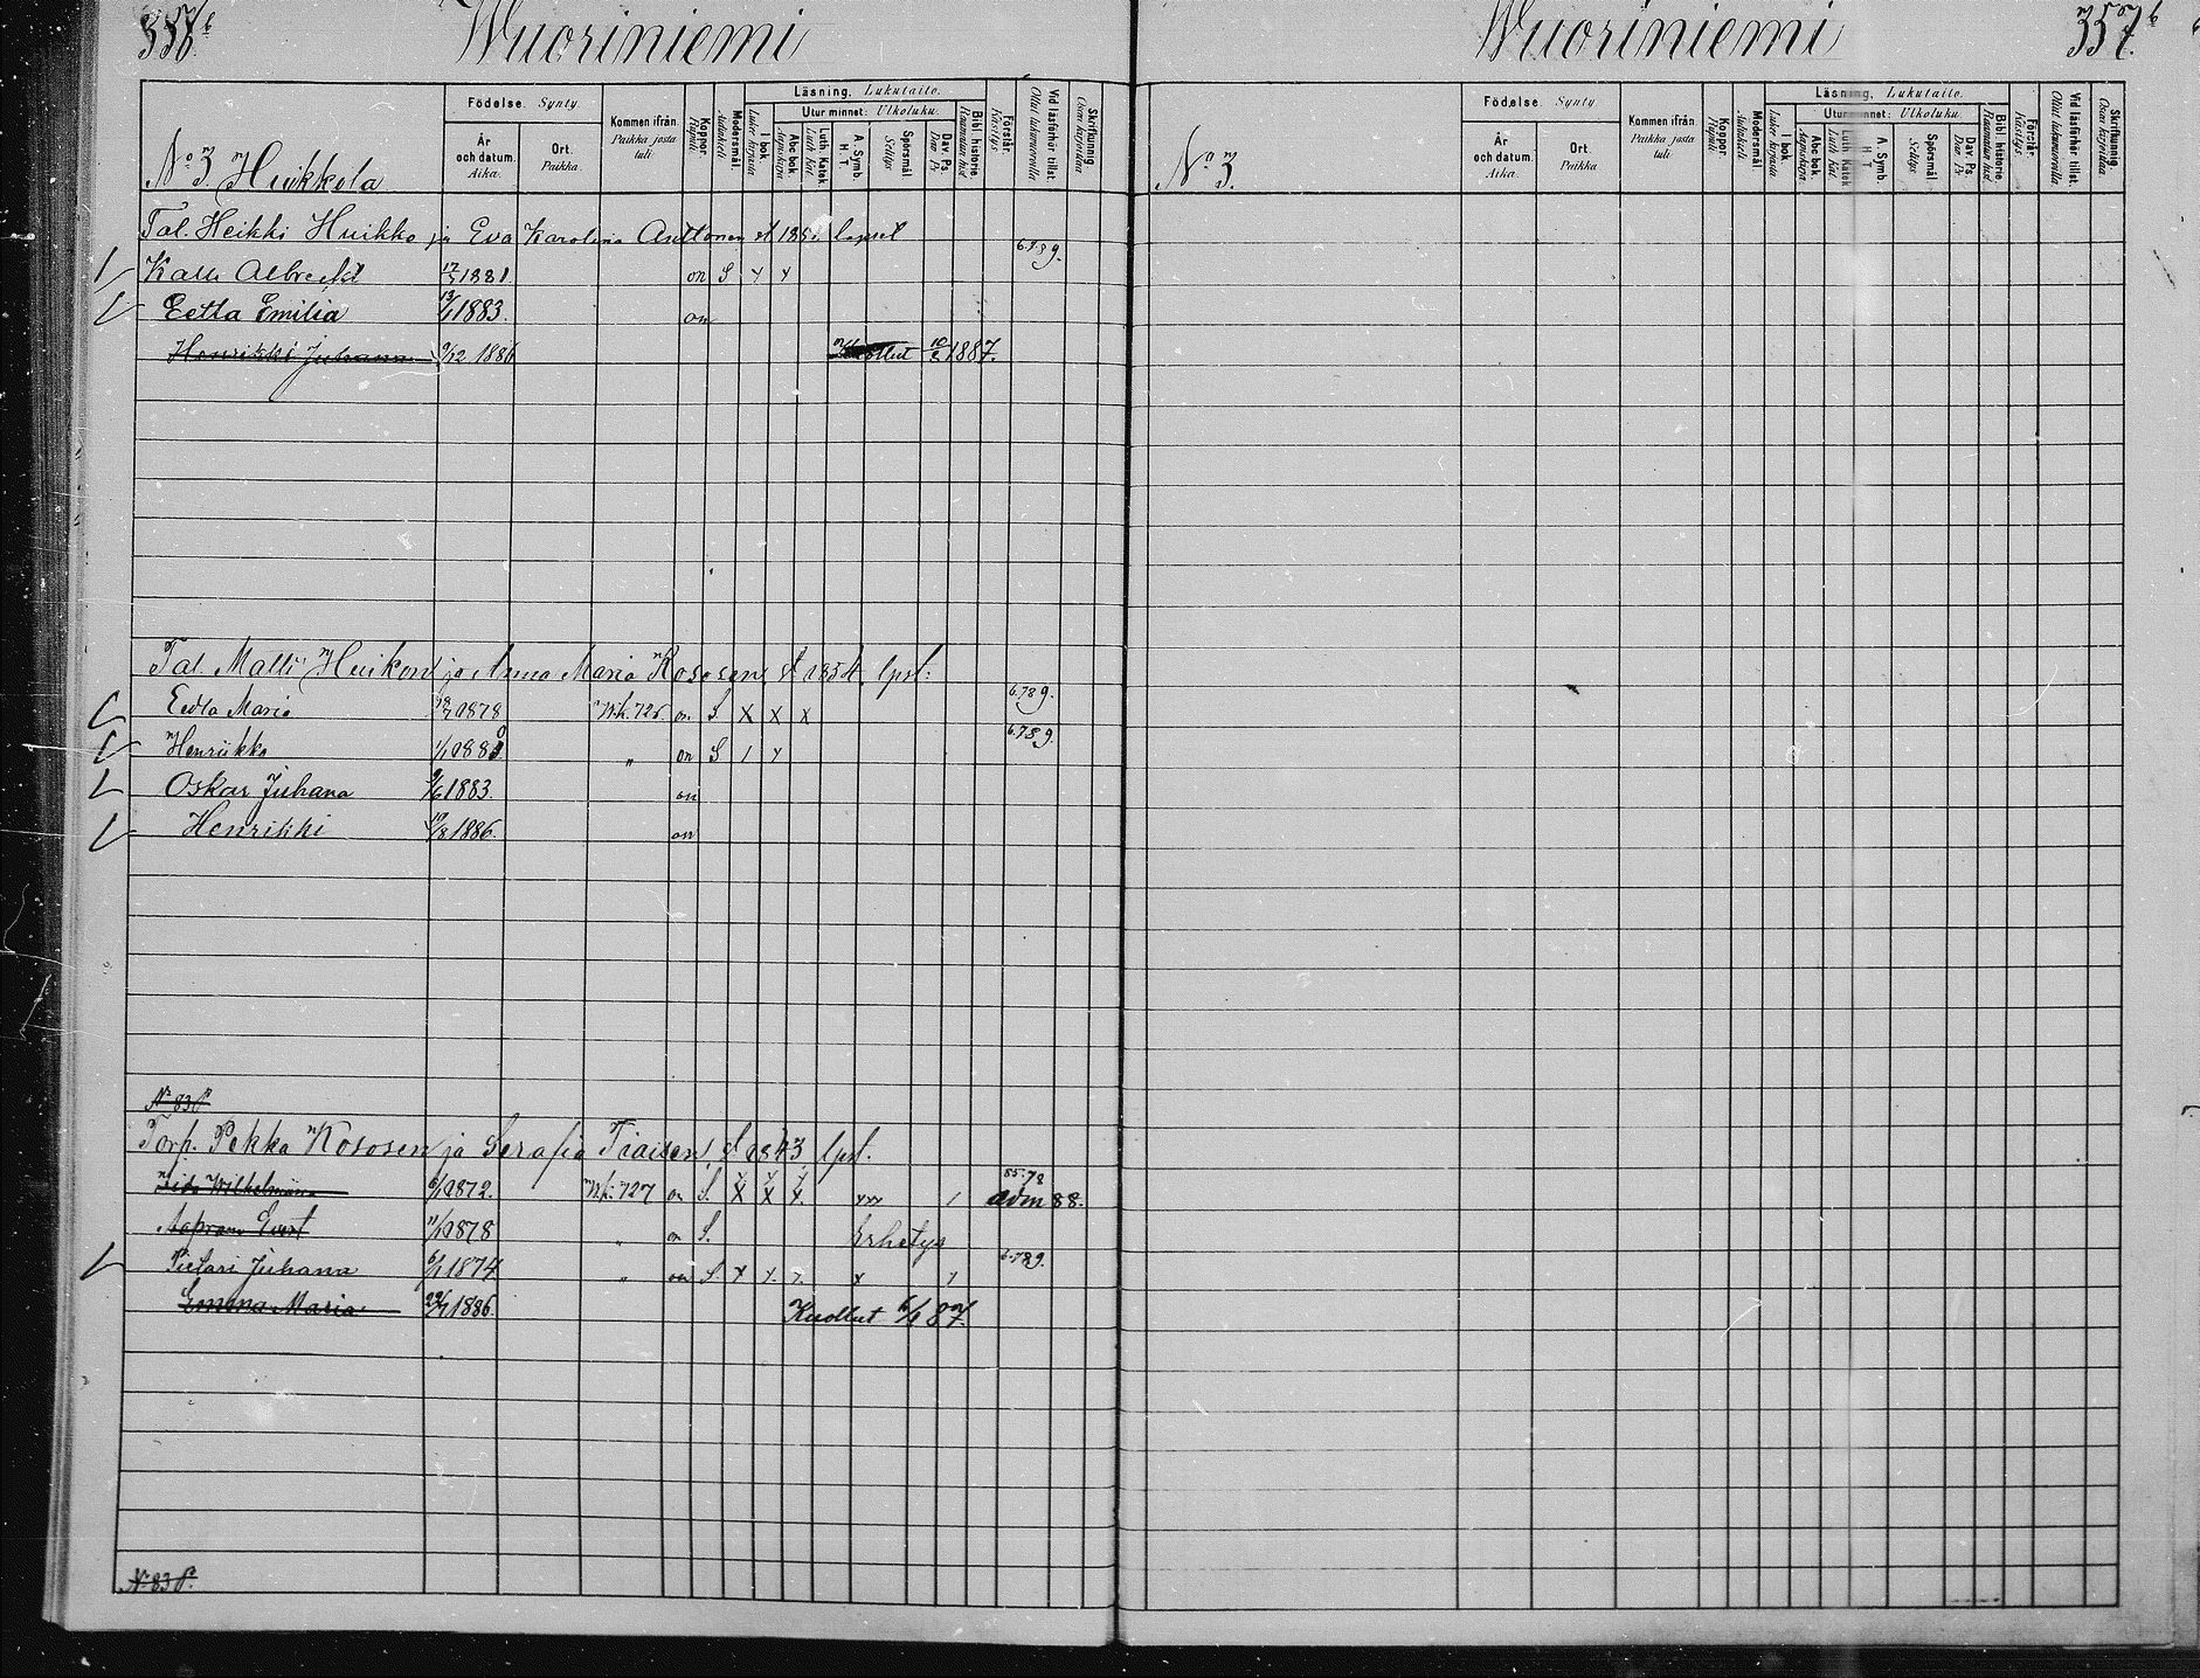 Wuoriniemi
Wuoriniemi
357
Födelse. Synty.
År och datum. Aika.
Ort. Paikka.
Kommen ifrån. Paikka josta tuli.
Koppor. Rupuli
Modersmål. Äidinkieli
Läsning. Lukutaito.
I bok. Lukee kirjasta
Utur minnet: Ulkoluku.
Abc bok. Aapiskirja
Luth. Katek. Luth Kat.
A. Symb. H. T.
Spörsmål. Selitys
Dav. Ps. Dav Ps
Bibl historie. Raamatun hist.
Förstår. Käsitys
Vid läsförhör tillst. Ollut lukuvuorolla
Skrifkunnig. Osaa kirjoittaa
No 3. Huikkola
Tal. Heikki Huikko ja Eva Karolina Anttonen lapset
Kalle Albrecht 1881. on S
Eetla Emilia 1883. on
Henrikki Juhana 9/12 1886 Kuollut 1887.
Tal. Matti Huikon ja Anna Maria Kososen, 1854, lpst:
Eedla Maria 1878 Wk. 726. on S. X X X 6.789.
Henrikka on S 6.789.
Oskar Juhana 9/6 1883. on
Henrikki 1886. on
No 83
Torp. Pekka Kososen ja Serafia Tiaisen, lpst.
Wilhelmiina 1872. Wk. 727 on S. X X X xxx adm 88.
Aapram Evert 1878 on S. Erhetys
Pietari Juhana 1874 on S. 6.789.
Emma Maria 1886. Kuollut 87.
No 83
Födelse. Synty.
År och datum. Aika.
Ort. Paikka
Kommen ifrån. Paikka josta tuli
Koppor. Rupuli
Modersmål. Äidinkieli
Läsning. Lukutaito.
I bok. Lukee kirjasta
Utur minnet: Ulkoluku.
Abc bok. Aapiskirja
Luth. Katek Luth Kat.
A. Symb. H. T.
Spörsmål. Selitys
Dav. Ps Dav Ps
Bibl historie. Raamatun hist.
Förstår. Käsitys
Vid läsförhör tillst. Ollut lukuvuorolla
Skrifkunnig. Osaa kirjoittaa
No 3.